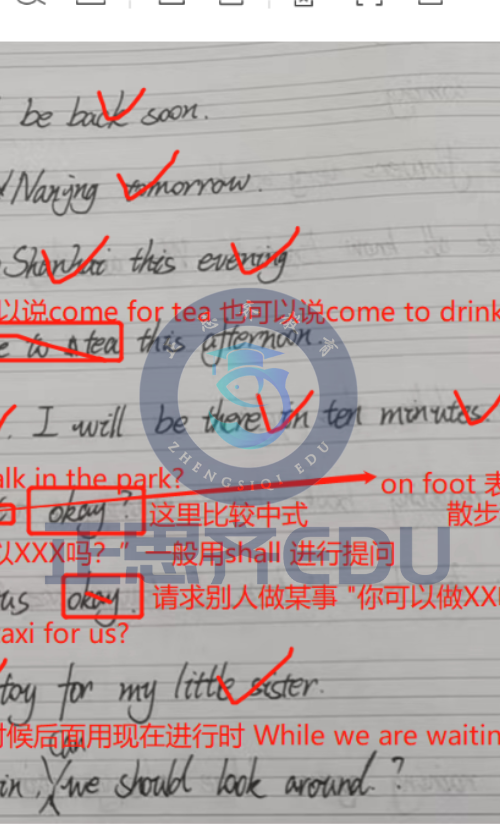 be back soon.
Nanjng tomorrow.
Shanhai this evening
以说come for tea 也可以说come to drink
e to a tea this afternoon.
. I will be there in ten minutes.
alk in the park?
on foot 表
okay ? 这里比较中式 散步
以XXX吗? 一般用shall 进行提问
正思齐EDU
us okay. 请求别人做某事 "你可以做XX
axi for us?
toy for my little sister.
时候后面用现在进行时 While we are waitin
can
in, we should look around. ?
ZHENGSIQI EDU